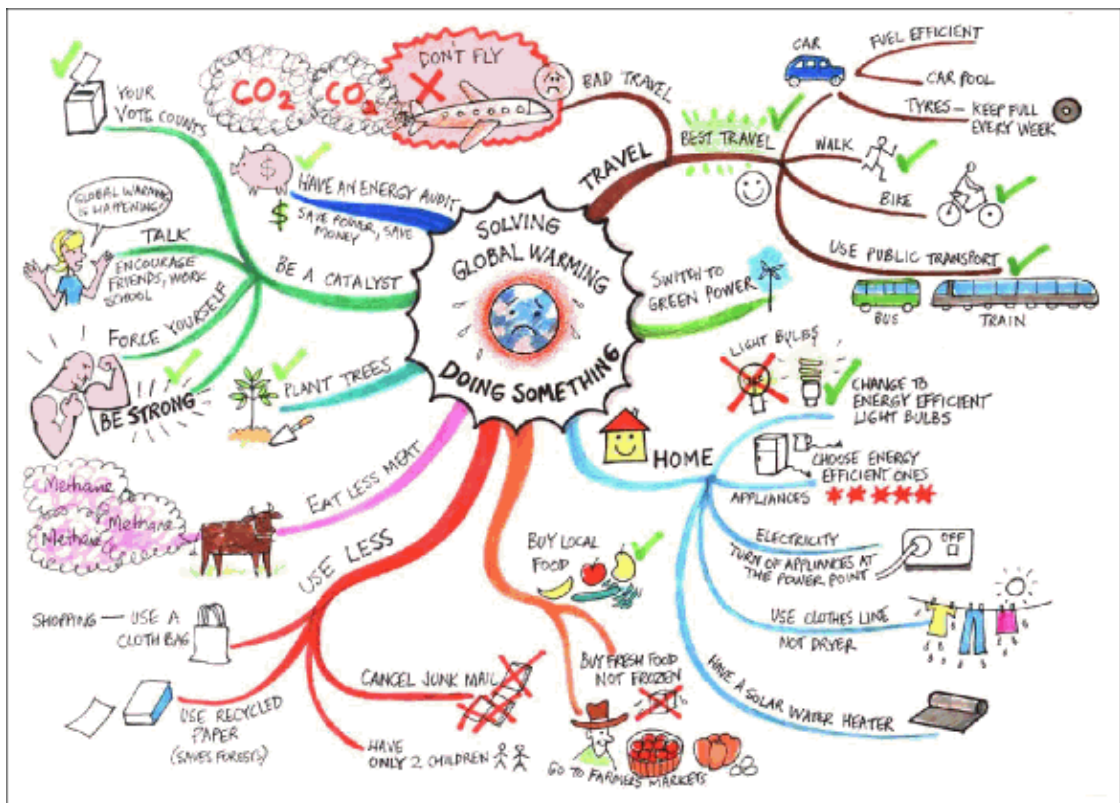 SOLVING
GLOBAL WARMING
DOING SOMETHING
TRAVEL
BAD TRAVEL
DON'T FLY
CO2
CO2
BEST TRAVEL
CAR
FUEL EFFICIENT
CAR POOL
TYRES — KEEP FULL
EVERY WEEK
WALK
BIKE
USE PUBLIC TRANSPORT
BUS
TRAIN
SWITCH TO
GREEN POWER
HOME
LIGHT BULBS
CHANGE TO
ENERGY EFFICIENT
LIGHT BULBS
CHOOSE ENERGY
EFFICIENT ONES
APPLIANCES
ELECTRICITY
TURN OF APPLIANCES AT
THE POWER POINT
OFF
USE CLOTHES LINE
NOT DRYER
HAVE A SOLAR WATER HEATER
BUY LOCAL
FOOD
BUY FRESH FOOD
NOT FROZEN
GO TO FARMERS MARKETS
USE LESS
CANCEL JUNK MAIL
HAVE
ONLY 2 CHILDREN
USE RECYCLED
PAPER
(SAVES FORESTS)
SHOPPING — USE A
CLOTH BAG
EAT LESS MEAT
Methane
Methane
Methane
PLANT TREES
BE A CATALYST
YOUR
VOTE COUNTS
TALK
ENCOURAGE
FRIENDS, WORK
SCHOOL
GLOBAL WARMING
IS HAPPENING!
FORCE YOURSELF
BE STRONG
HAVE AN ENERGY AUDIT
SAVE POWER, SAVE
MONEY
$
$